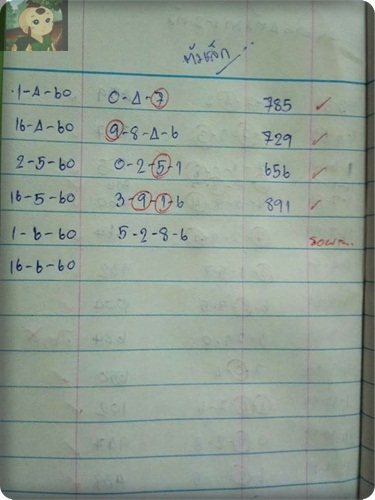 1-4-60 0-4-7 785 ✓
16-4-60 9-8-4-6 729 ✓
2-5-60 0-2-5-1 656 ✓
16-5-60 3-9-1-6 891 ✓
1-6-60 5-2-8-6 รอผล...
16-6-60